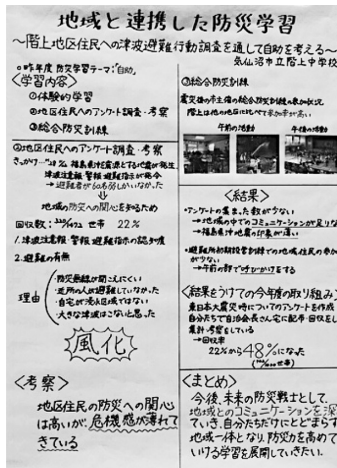 地域と連携した防災学習
〜階上地区住民への津波避難行動調査を通して自助を考える〜
気仙沼市立階上中学校
○昨年度 防災学習テーマ:「自助」
<学習内容>
①体験的学習
②地区住民へのアンケート調査・考察
③総合防災訓練
②地区住民へのアンケート調査・考察
福島県沖震源とする地震が発生
津波注意報・警報 避難指示が発令
→避難者が60名弱しかいなかった
地域の防災への関心を知るため
世帯 22%
1. 津波注意報・警報、避難指示の認知度
2. 避難の有無
理由
・防災無線が聞こえにくい
・近所の人が避難していなかった
・自宅が浸水区域ではない
・大きな津波はこないと思った
風化
<考察>
地区住民の防災への関心
は高いが、危機感が薄れて
きている
③総合防災訓練
震災後の市主催の総合防災訓練の参加状況
階上は他の地区に比べて参加率が高い
午前の活動
午後の活動
<結果>
・アンケートの集まった数が少ない
→地域の中でのコミュニケーションが足りな
→福島県沖地震の印象が薄い
・避難所初期設営訓練での地域住民の参加
が少ない
→午前の部で呼びかけをする
<結果をうけての今年度の取り組み>
東日本大震災時についてのアンケートを作成
自分たちで自治会長さん宅に配布・回収をし
集計・考察をしている
→回収率
22%から48%になった
<まとめ>
今後、未来の防災戦士として、
地域とのコミュニケーションを深
ていき、自分たちだけにとどまらず
地域一体となり、防災力を高めて
いける学習を展開していきたい。